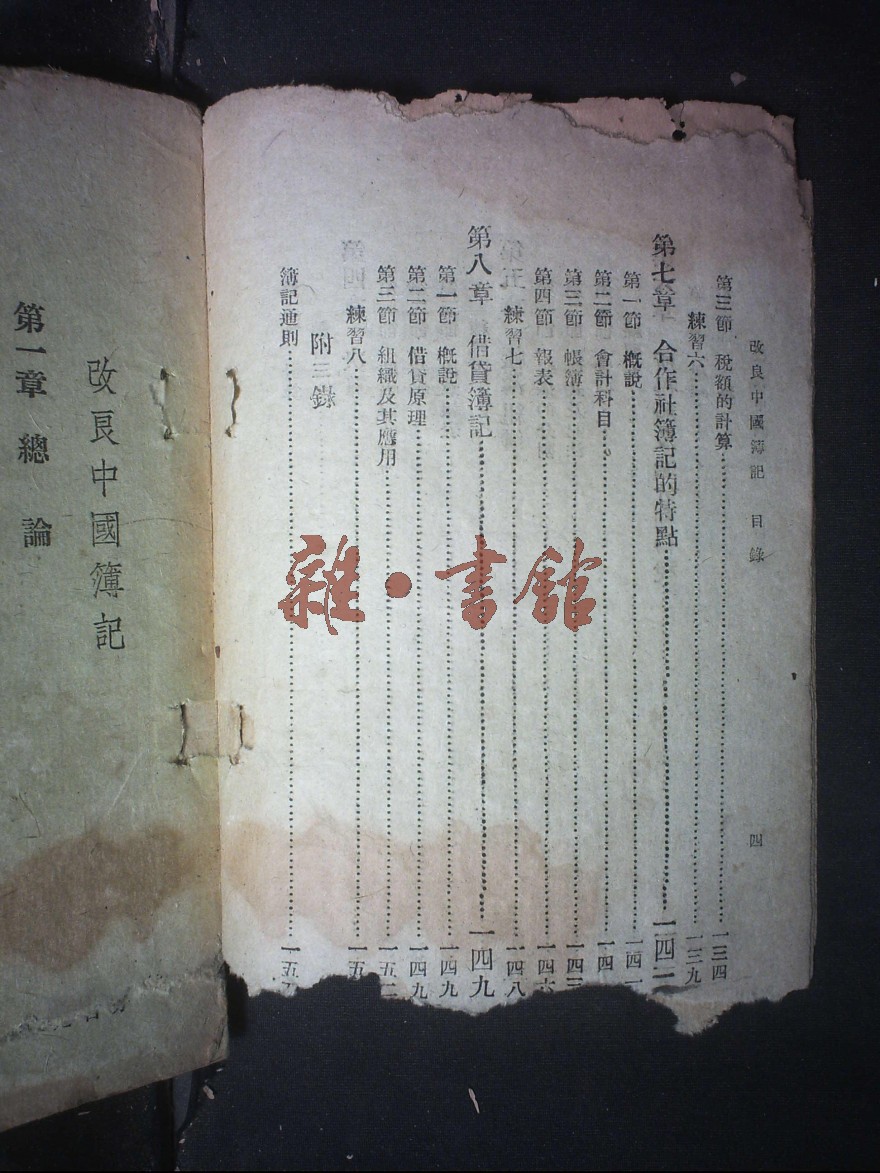 改良中國簿記 目錄 四
第三節 稅額的計算 一三四
練習六 一三九
第七章 合作社簿記的特點 一四一
第一節 概說 一四一
第二節 會計科目 一四
第三節 帳簿 一四三
第四節 報表 一四六
練習七 一四八
第八章 借貸簿記 一四九
第一節 概說 一四九
第二節 借貸原理 一四九
第三節 組織及其應用 一五二
練習八 一五
附三錄
簿記通則 一五
雜·書館
改良中國簿記
第一章 總論